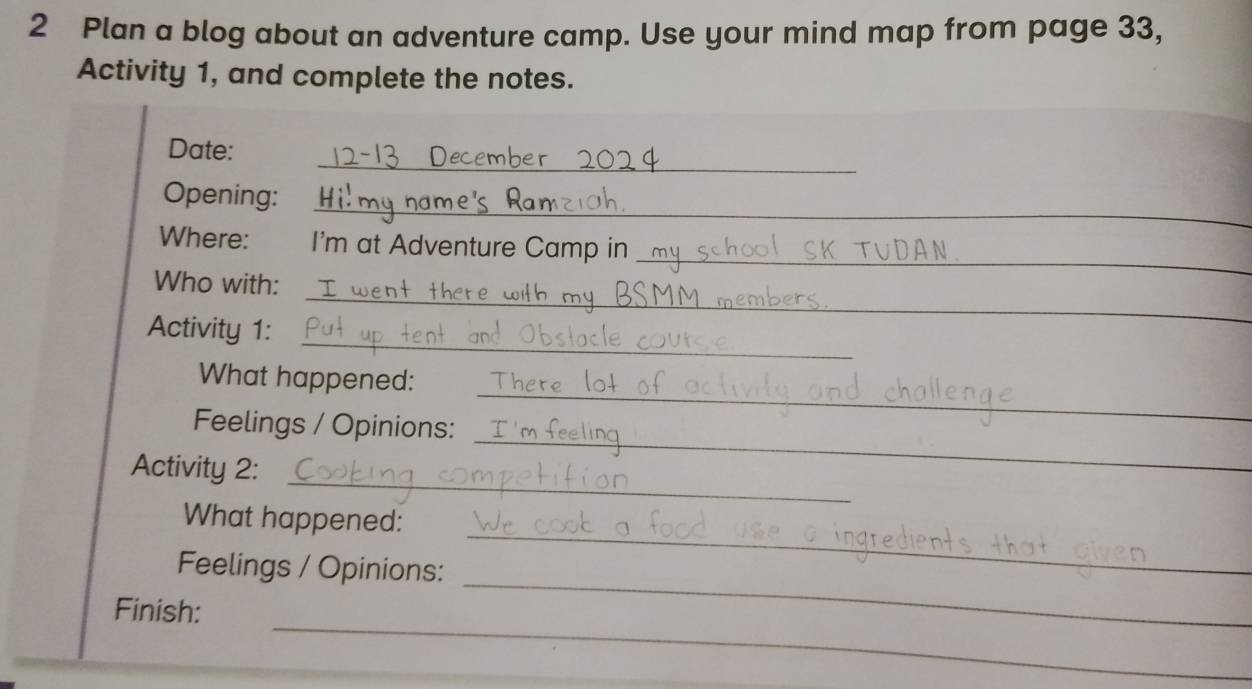 2 Plan a blog about an adventure camp. Use your mind map from page 33,
Activity 1, and complete the notes.
Date: 12-13 December 2024
Opening: Hi! my name's Ramziah.
Where: I'm at Adventure Camp in my school SK TUDAN.
Who with: I went there with my BSMM members.
Activity 1: Put up tent and Obstacle course.
What happened: There lot of activity and challenge
Feelings / Opinions: I'm feeling
Activity 2: Cooking competition
What happened: We cook a food use a ingredients that given
Feelings / Opinions:
Finish: